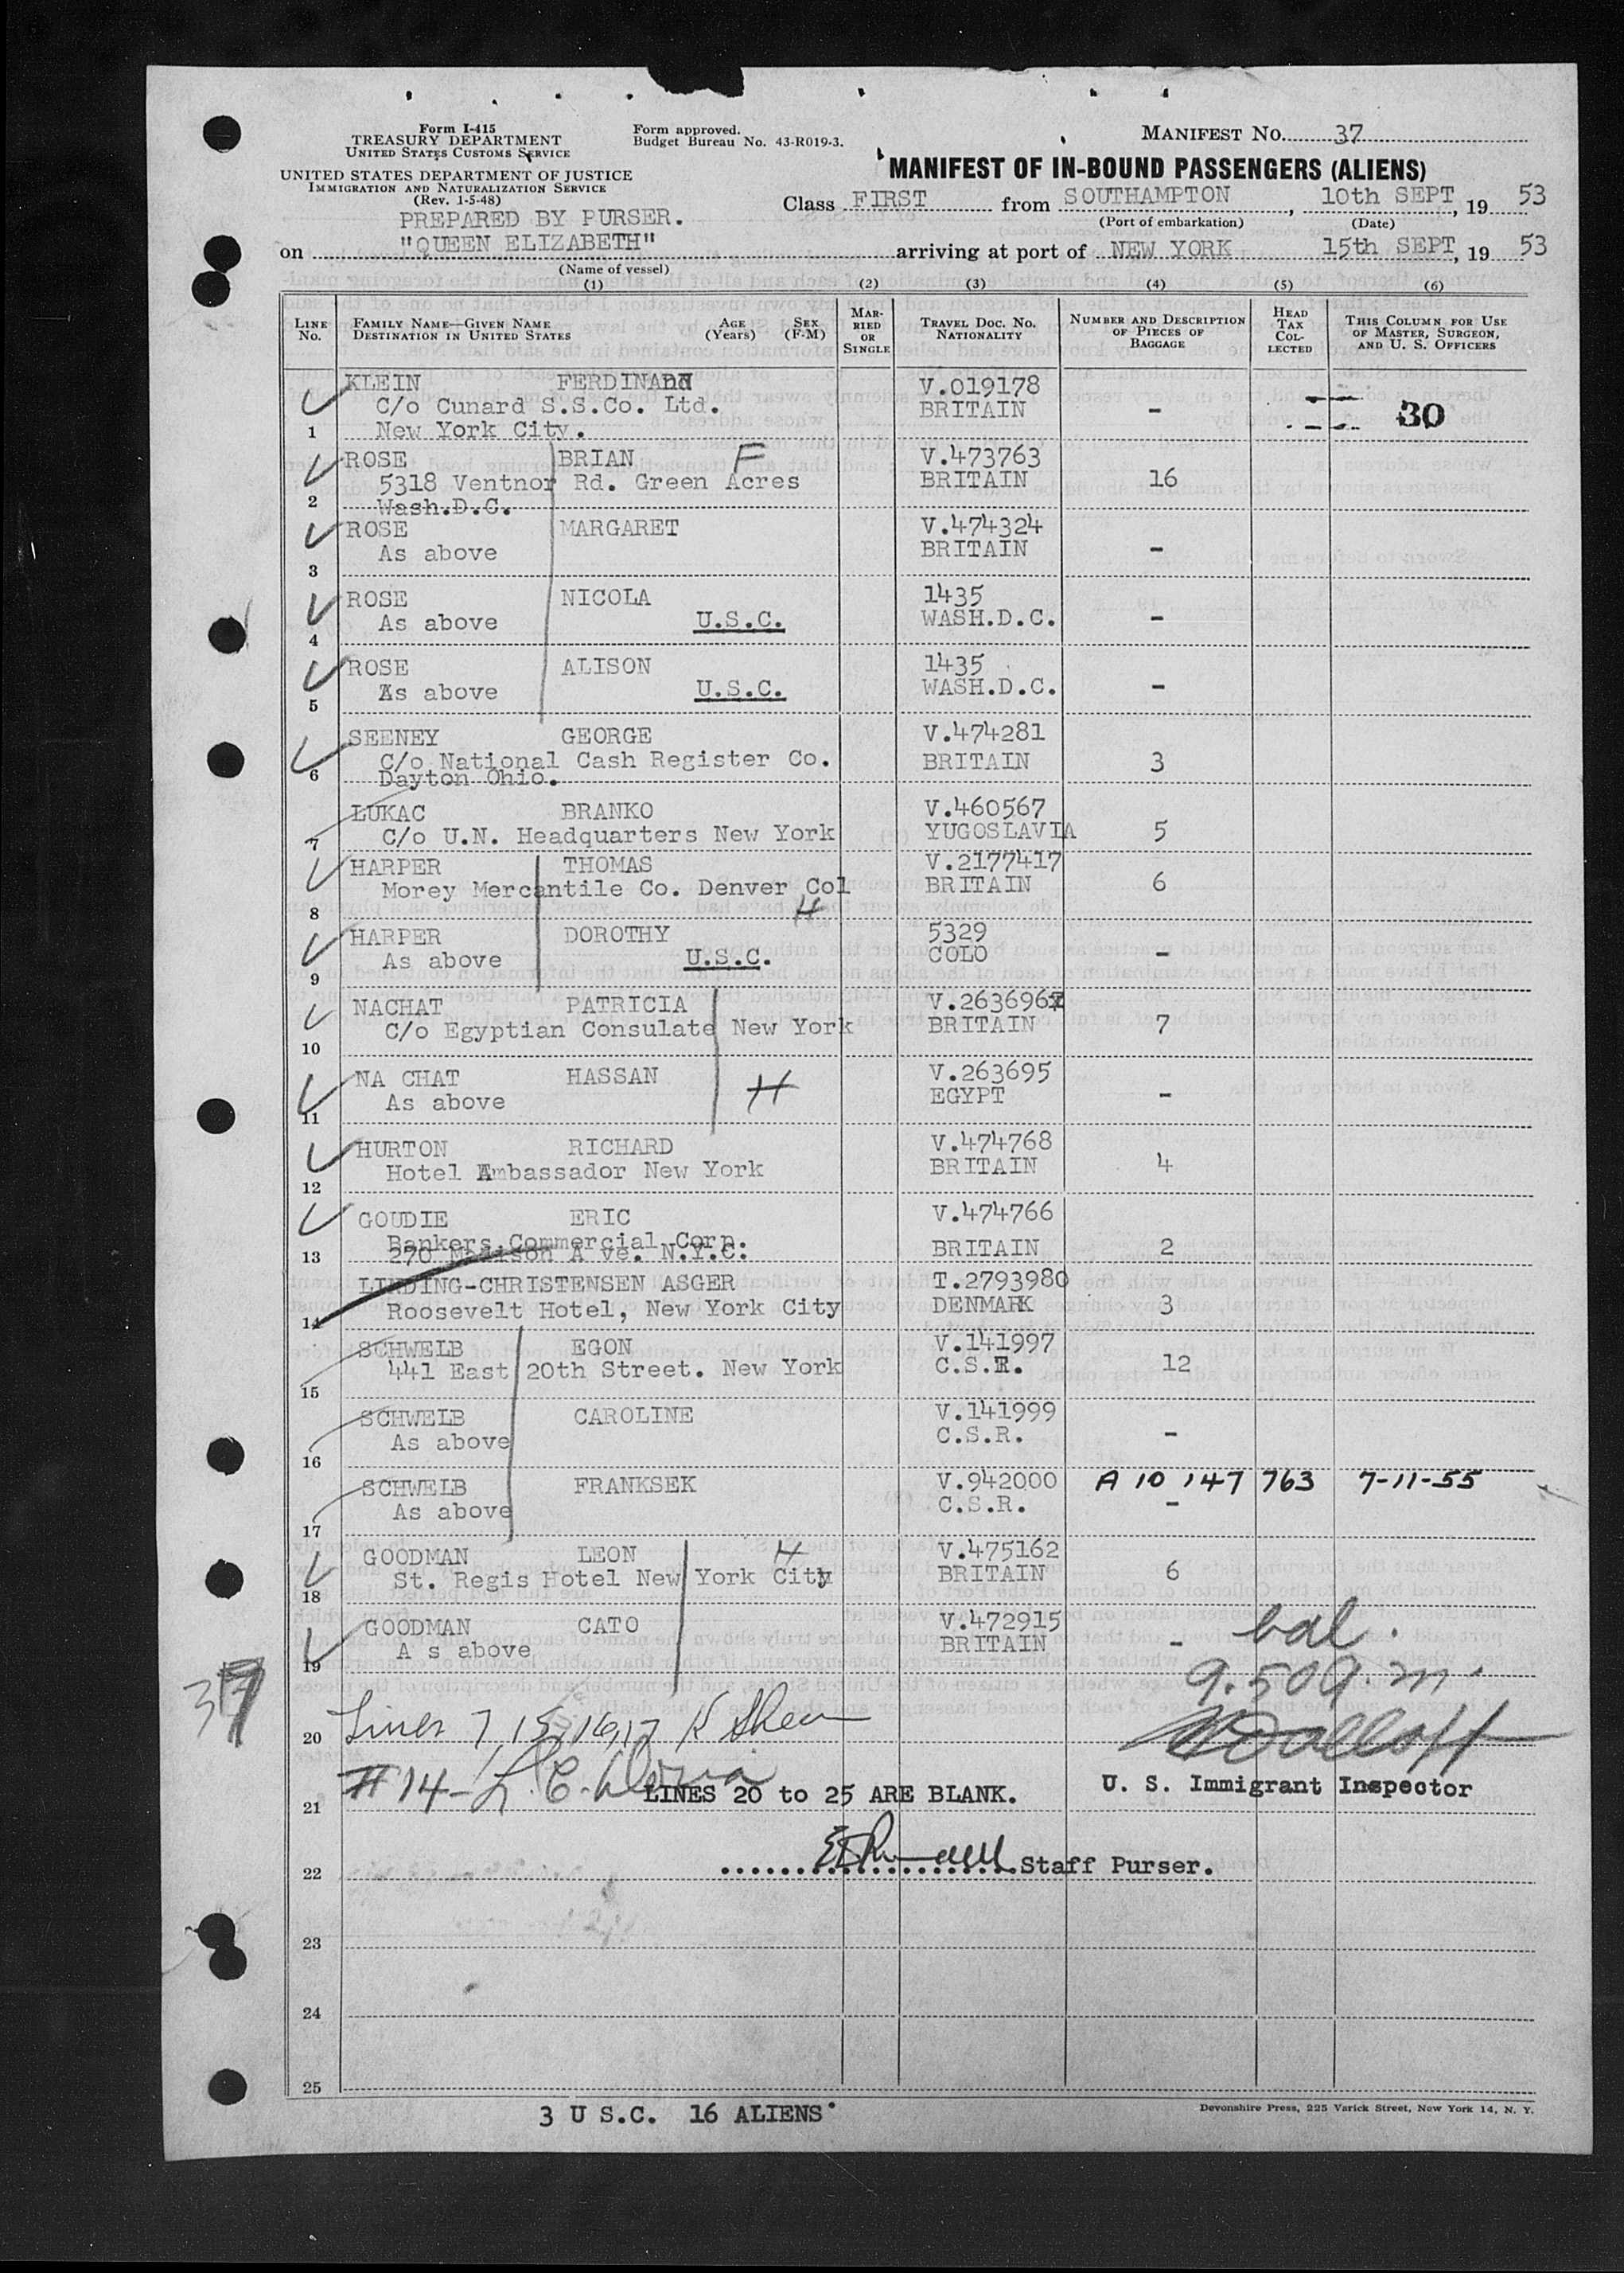 Form I-415
TREASURY DEPARTMENT
UNITED STATES CUSTOMS SERVICE
UNITED STATES DEPARTMENT OF JUSTICE
IMMIGRATION AND NATURALIZATION SERVICE
(Rev. 1-5-48)
Form approved.
Budget Bureau No. 43-R019-3.
MANIFEST NO. 37
MANIFEST OF IN-BOUND PASSENGERS (ALIENS)
Class FIRST from SOUTHAMPTON, 10th SEPT, 19 53
(Port of embarkation) (Date)
PREPARED BY PURSER.
on "QUEEN ELIZABETH" arriving at port of NEW YORK 15th SEPT, 19 53
(Name of vessel)
(1) (2) (3) (4) (5) (6)
LINE No. FAMILY NAME—GIVEN NAME DESTINATION IN UNITED STATES AGE (Years) SEX (F-M) MARRIED OR SINGLE TRAVEL DOC. NO. NATIONALITY NUMBER AND DESCRIPTION OF PIECES OF BAGGAGE HEAD TAX COLLECTED THIS COLUMN FOR USE OF MASTER, SURGEON, AND U. S. OFFICERS
KLEIN FERDINAND V.019178
C/o Cunard S.S.Co. Ltd. BRITAIN - 30
1 New York City.
ROSE BRIAN F V.473763
5318 Ventnor Rd. Green Acres BRITAIN 16
2 Wash.D.C.
ROSE MARGARET V.474324
As above BRITAIN -
3
ROSE NICOLA 1435
As above U.S.C. WASH.D.C. -
4
ROSE ALISON 1435
As above U.S.C. WASH.D.C. -
5
SEENEY GEORGE V.474281
C/o National Cash Register Co. BRITAIN 3
6 Dayton Ohio.
LUKAC BRANKO V.460567
7 C/o U.N. Headquarters New York YUGOSLAVIA 5
HARPER THOMAS V.2177417
Morey Mercantile Co. Denver Col BRITAIN 6
8 H
HARPER DOROTHY 5329
As above U.S.C. COLO -
9
NACHAT PATRICIA V.263696
C/o Egyptian Consulate New York BRITAIN 7
10
NA CHAT HASSAN H V.263695
As above EGYPT -
11
HURTON RICHARD V.474768
Hotel Ambassador New York BRITAIN 4
12
GOUDIE ERIC V.474766
Bankers Commercial Corp.
13 270 Madison A ve. N.Y.C. BRITAIN 2
LINDING-CHRISTENSEN ASGER T.2793980
14 Roosevelt Hotel, New York City DENMARK 3
SCHWELB EGON V.141997
441 East 20th Street. New York C.S.R. 12
15
SCHWELB CAROLINE V.141999
As above C.S.R. -
16
SCHWELB FRANKSEK V.942000 A 10 147 763 7-11-55
As above C.S.R. -
17
GOODMAN LEON H V.475162
St. Regis Hotel New York City BRITAIN 6
18
GOODMAN CATO V.472915
A s above BRITAIN -
19
bal.
37
9.50a.m.
20 Lines 7, 15, 16, 17 K Shea
#14-
U. S. Immigrant Inspector
21 LINES 20 to 25 ARE BLANK.
22 Staff Purser.
23
24
25
3 U S.C. 16 ALIENS
Devonshire Press, 225 Varick Street, New York 14, N. Y.